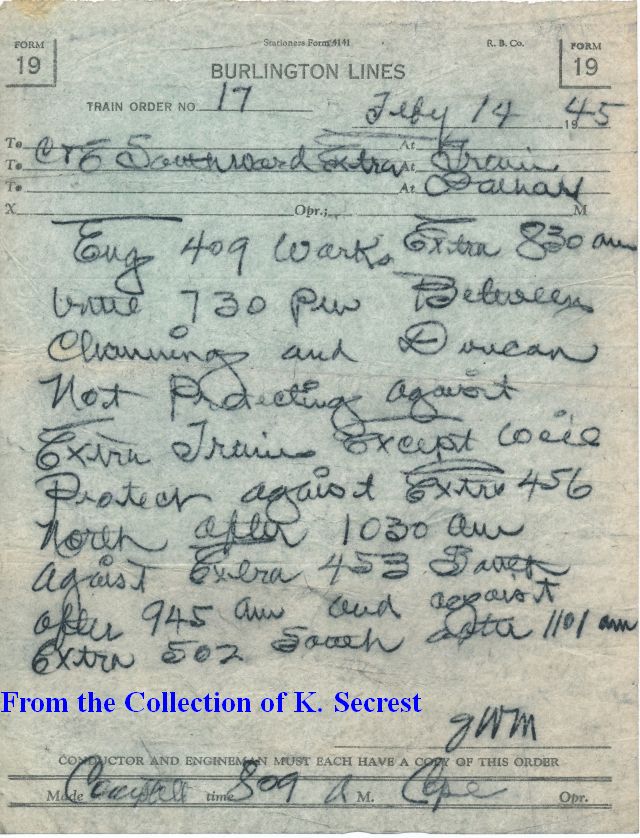 FORM 19
Stationers Form 4141
R. B. Co.
FORM 19
BURLINGTON LINES
TRAIN ORDER NO. 17
Feby 14 1945
To At
To C&E Southward Extra At Train
To At Dalhart
X Opr.; M
Eng 409 Works Extra 830 am
until 730 Pm Between
Channing and Duncan
Not Protecting against
Extra Trains Except will
Protect against Extra 456
North after 1030 am
against Extra 453 South
after 945 am and against
Extra 502 South after 1101 am
From the Collection of K. Secrest
GWM
CONDUCTOR AND ENGINEMAN MUST EACH HAVE A COPY OF THIS ORDER
Made Complete time 809 A M. Cope Opr.